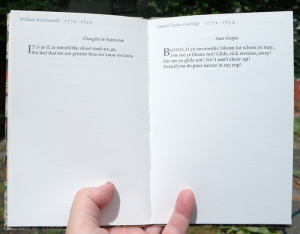 William Wordsworth 1770-1850
Thoughts in Repression
It is as if, as toward the silent tomb we go,
We feel that we are greater than we know we know.
Samuel Taylor Coleridge 1772-1834
Sour Grapes
BLOOM, O ye amaranths! bloom for whom ye may,
For me ye bloom not! Glide, rich streams, away!
For me ye glide not! No! I need cheer up!
Even if you do pour nectar in my cup!